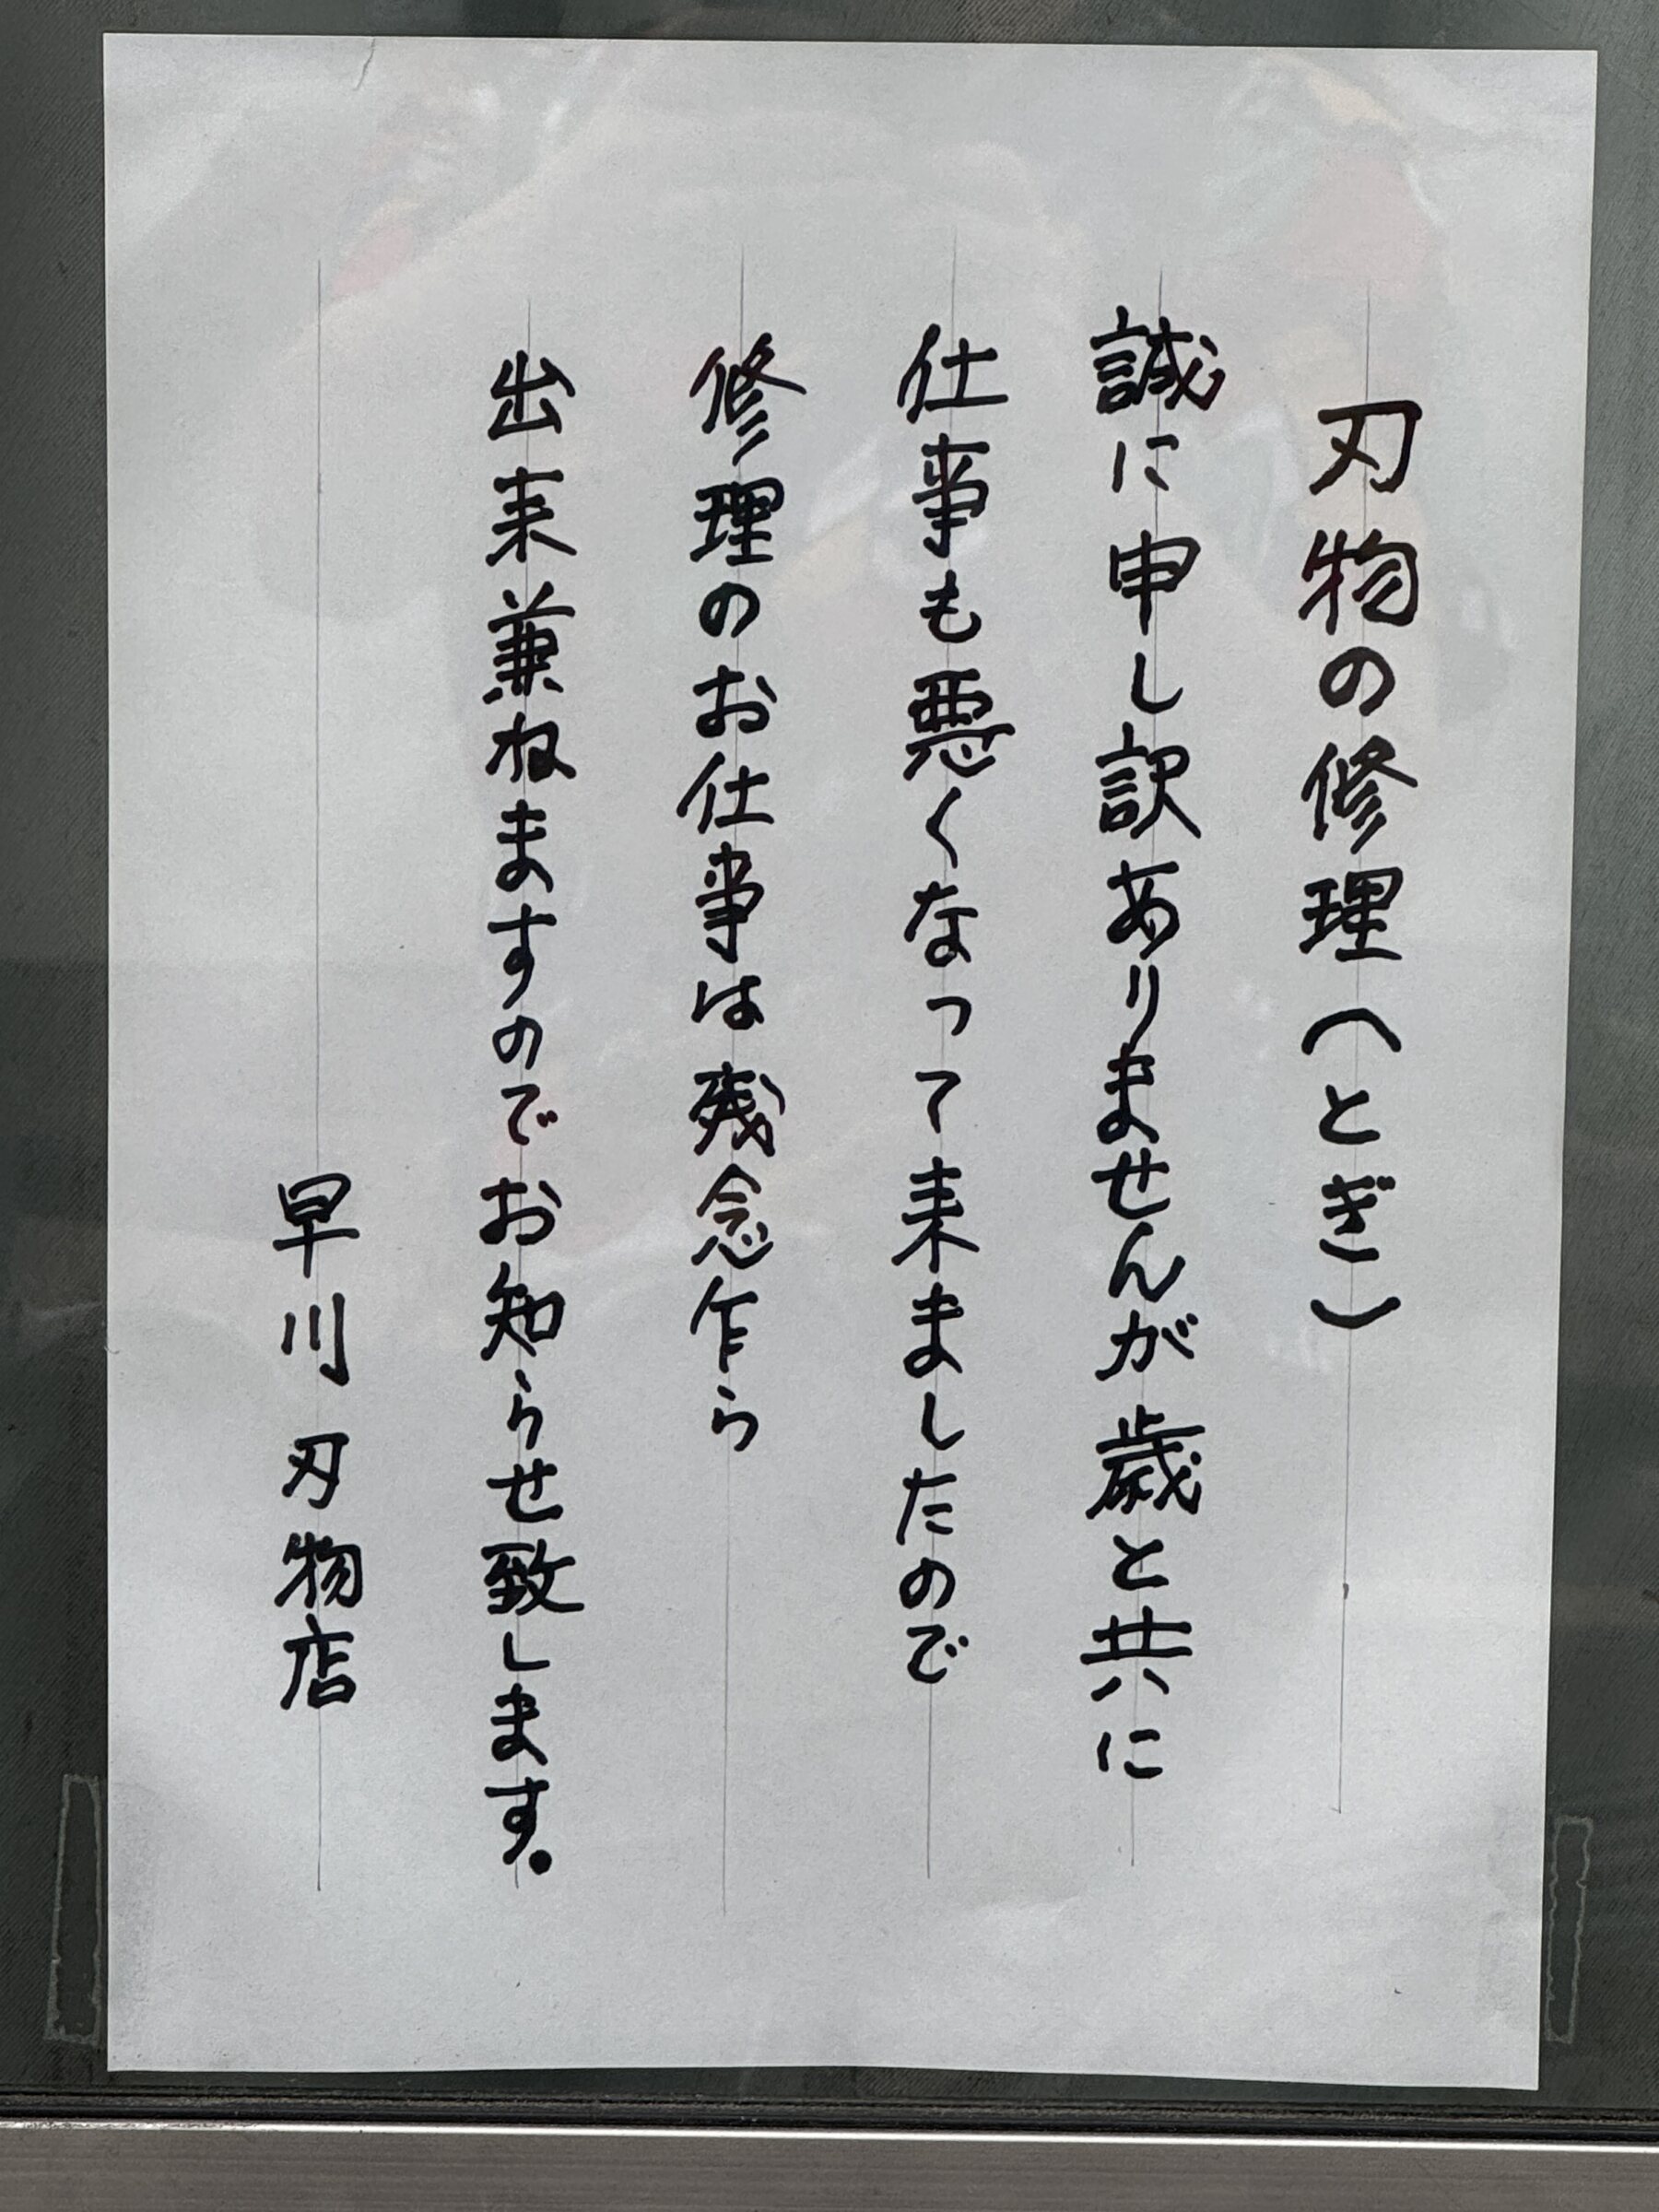 刃物の修理（とぎ）
誠に申し訳ありませんが歳と共に
仕事も悪くなって来ましたので
修理のお仕事は残念乍ら
出来兼ねますのでお知らせ致します。
早川刃物店